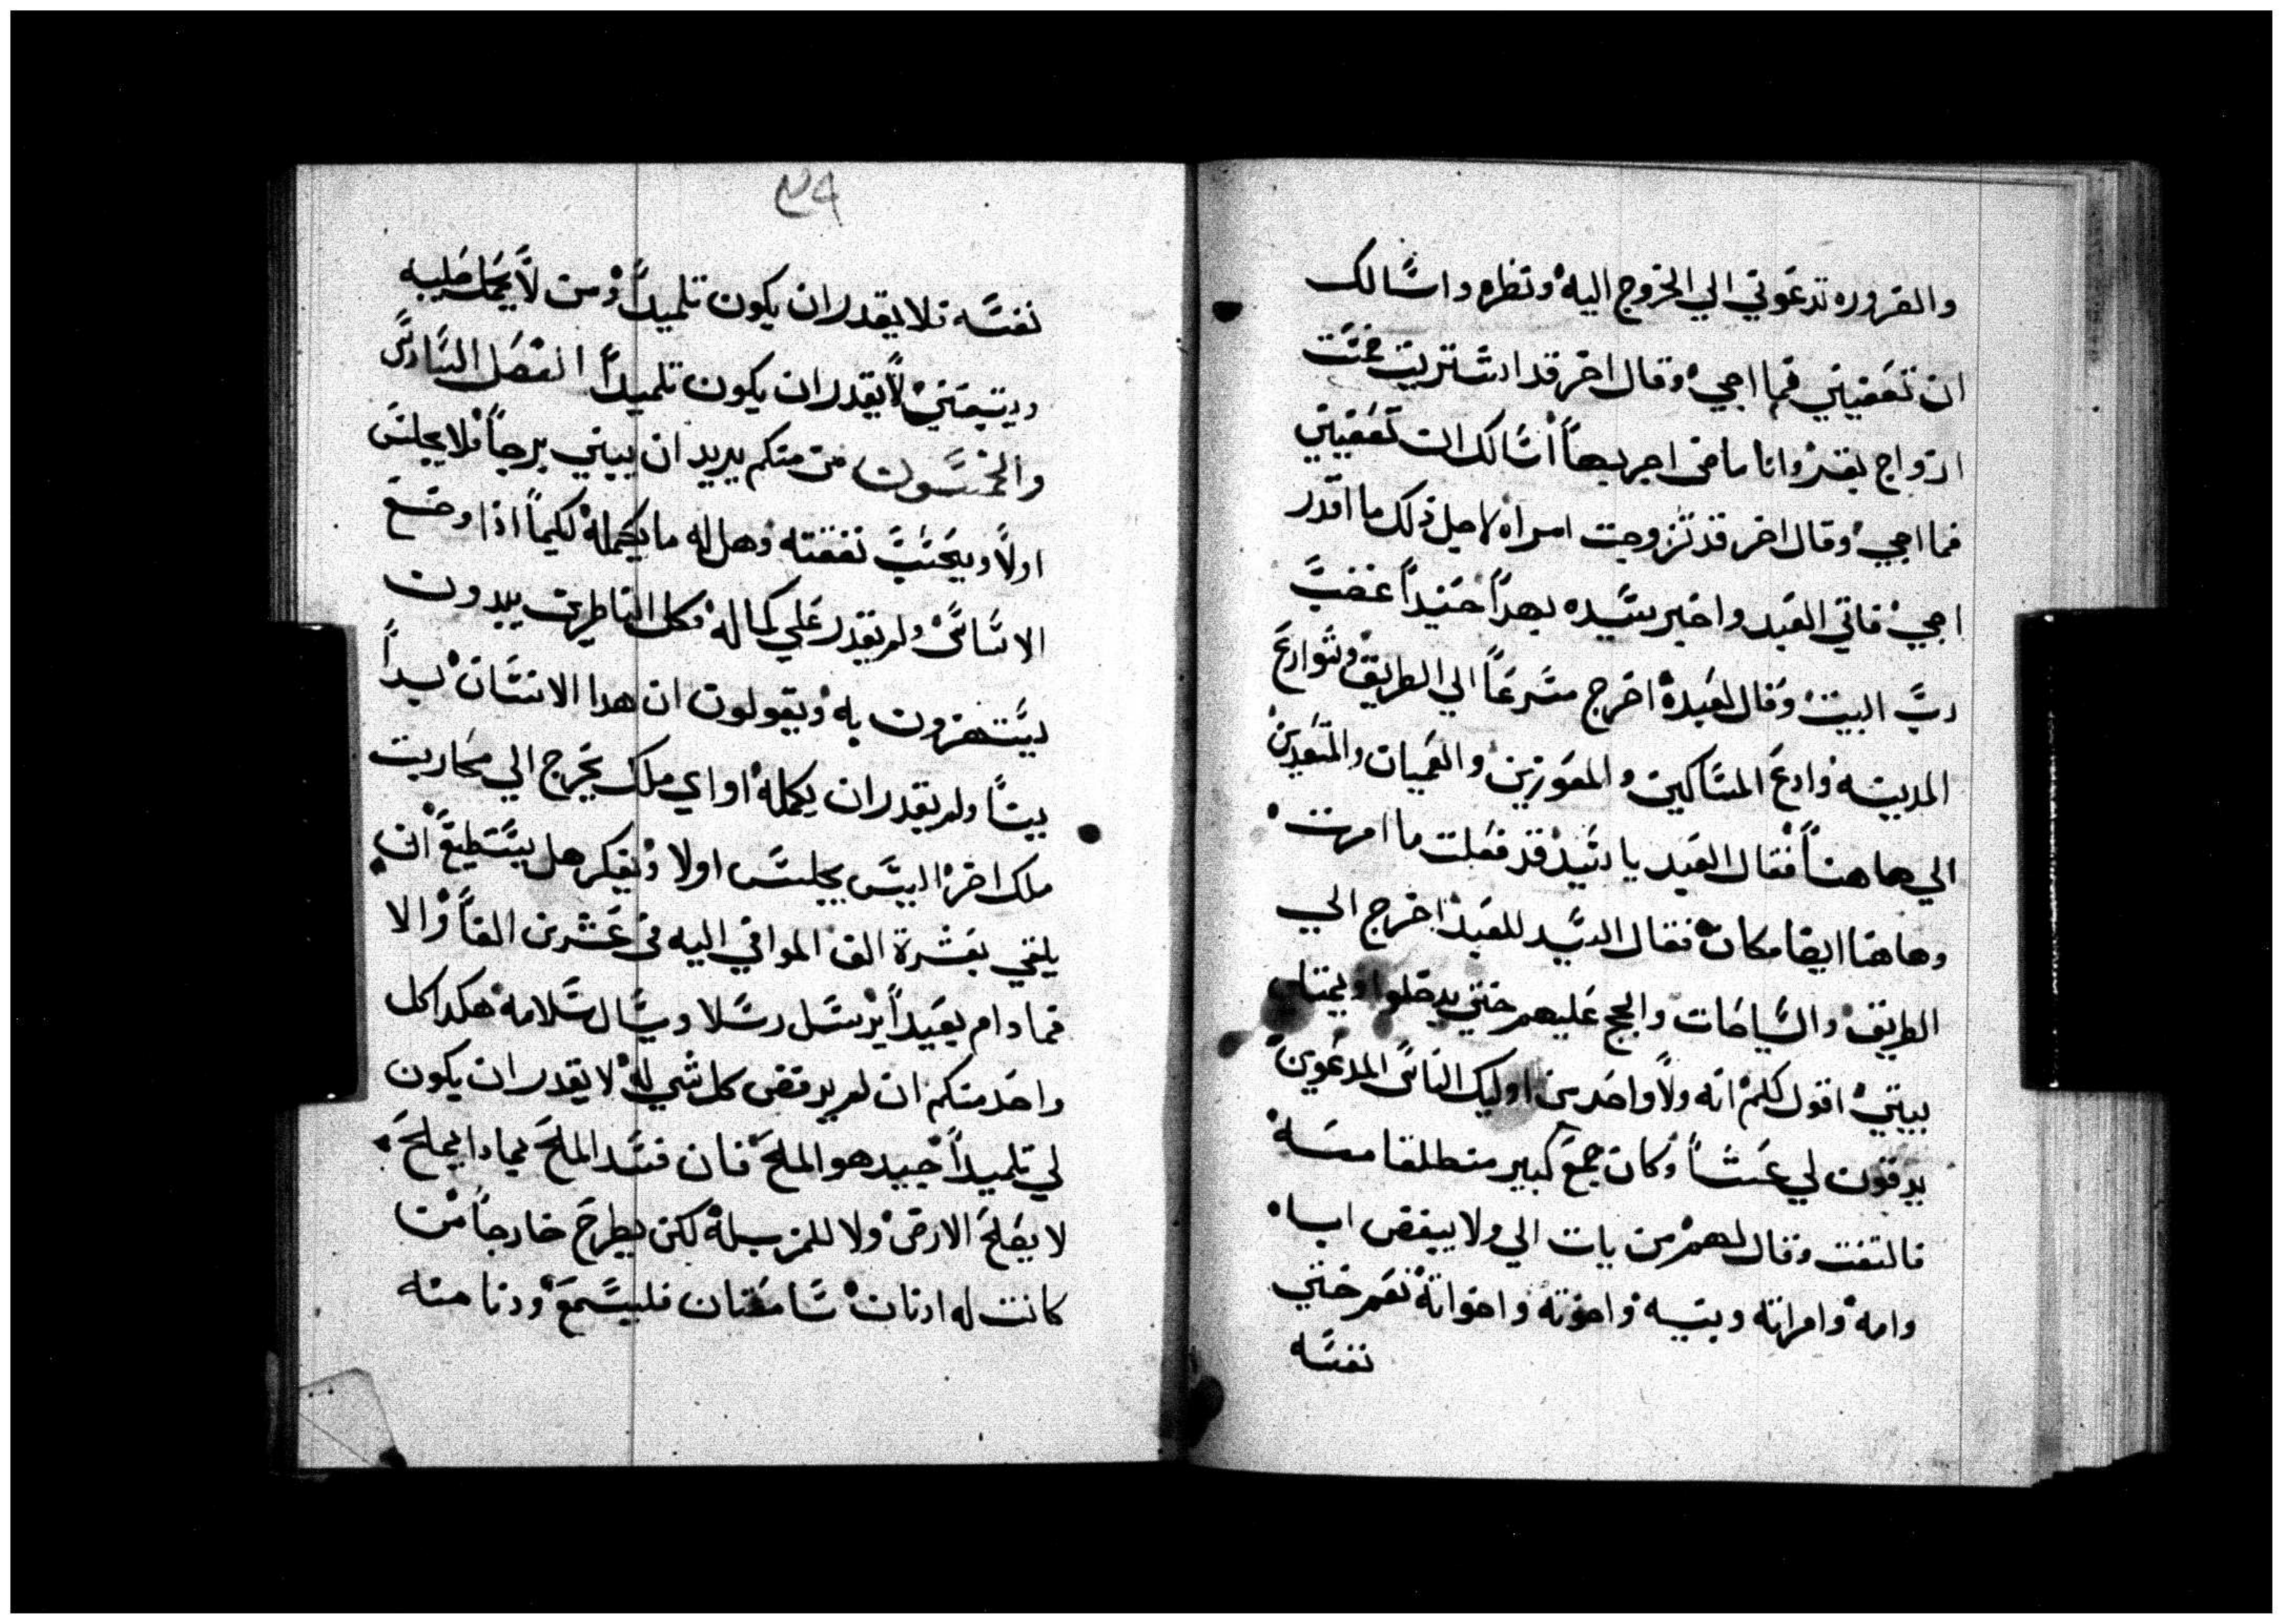 والضروره تدعوني الي الخروج اليه ونظره واسالك
ان تعفيني فما اجي وقال اخر قد اشتريت خمست
ازواج بقر وانا ماضي اجربها اسالك ان تعفيني
فما اجي وقال اخر قد تزوجت امراه لاجل ذلك ما اقدر
اجي فاتي العبد واخبر سيده بهدا حينيدا غضب
رب البيت وقال لعبده اخرج مسرعا الي الطريق وشوارع
المدينه وادع المساكين والمعوزين والعميان والمقعدين
الي هاهنا فقال العبد يا سيد قد فعلت ما امرت
وهاهنا ايضا مكان فقال السيد للعبد اخرج الي
الطريق والسياحات والجج عليهم حتي يدخلوا ويمتلي
بيتي اقول لكم انه ولا واحد من اوليك الناس المدعوين
يدقون لي عشا وكان جمع كبير منطلقا معه
فالتفت وقال لهم من يات الي ولا يبغض اباه
وامه وامراته وبنيه واخوته واخواته نعم حتي
نفسه
٤٩
نفسه فلا يقدر ان يكون تلميدا ومن لا يحمل صليبه
ويتبعني لا يقدر ان يكون تلميدا الفصل السادس
والخمسون من منكم يريد ان يبني برجا فلا يجلس
اولا ويحسب نفقته وهل له ما يكمله لكيما اذا وضع
الاساس ولم يقدر علي كماله فكل الناظرين يبدون
يستهزون به ويقولون ان هدا الانسان بدا
بيتا ولم يقدر ان يكمله او اي ملك يخرج الي محاربت
ملك اخر اليس يجلس اولا ويفكر هل يستطيع ان
يلقي بعشرة الف الموافي اليه في عشرين الفا والا
فما دام بعيدا يرسل رسلا ويسال سلامه هكدا كل
واحد منكم ان لم يرفض كل شي له لا يقدر ان يكون
لي تلميدا جيد هو الملح فان فسد الملح بمادا يملح
لا يصلح الارض ولا للمزبله لكن يطرح خارجا من
كانت له ادنان سامعتان فليسمع ودنا منه